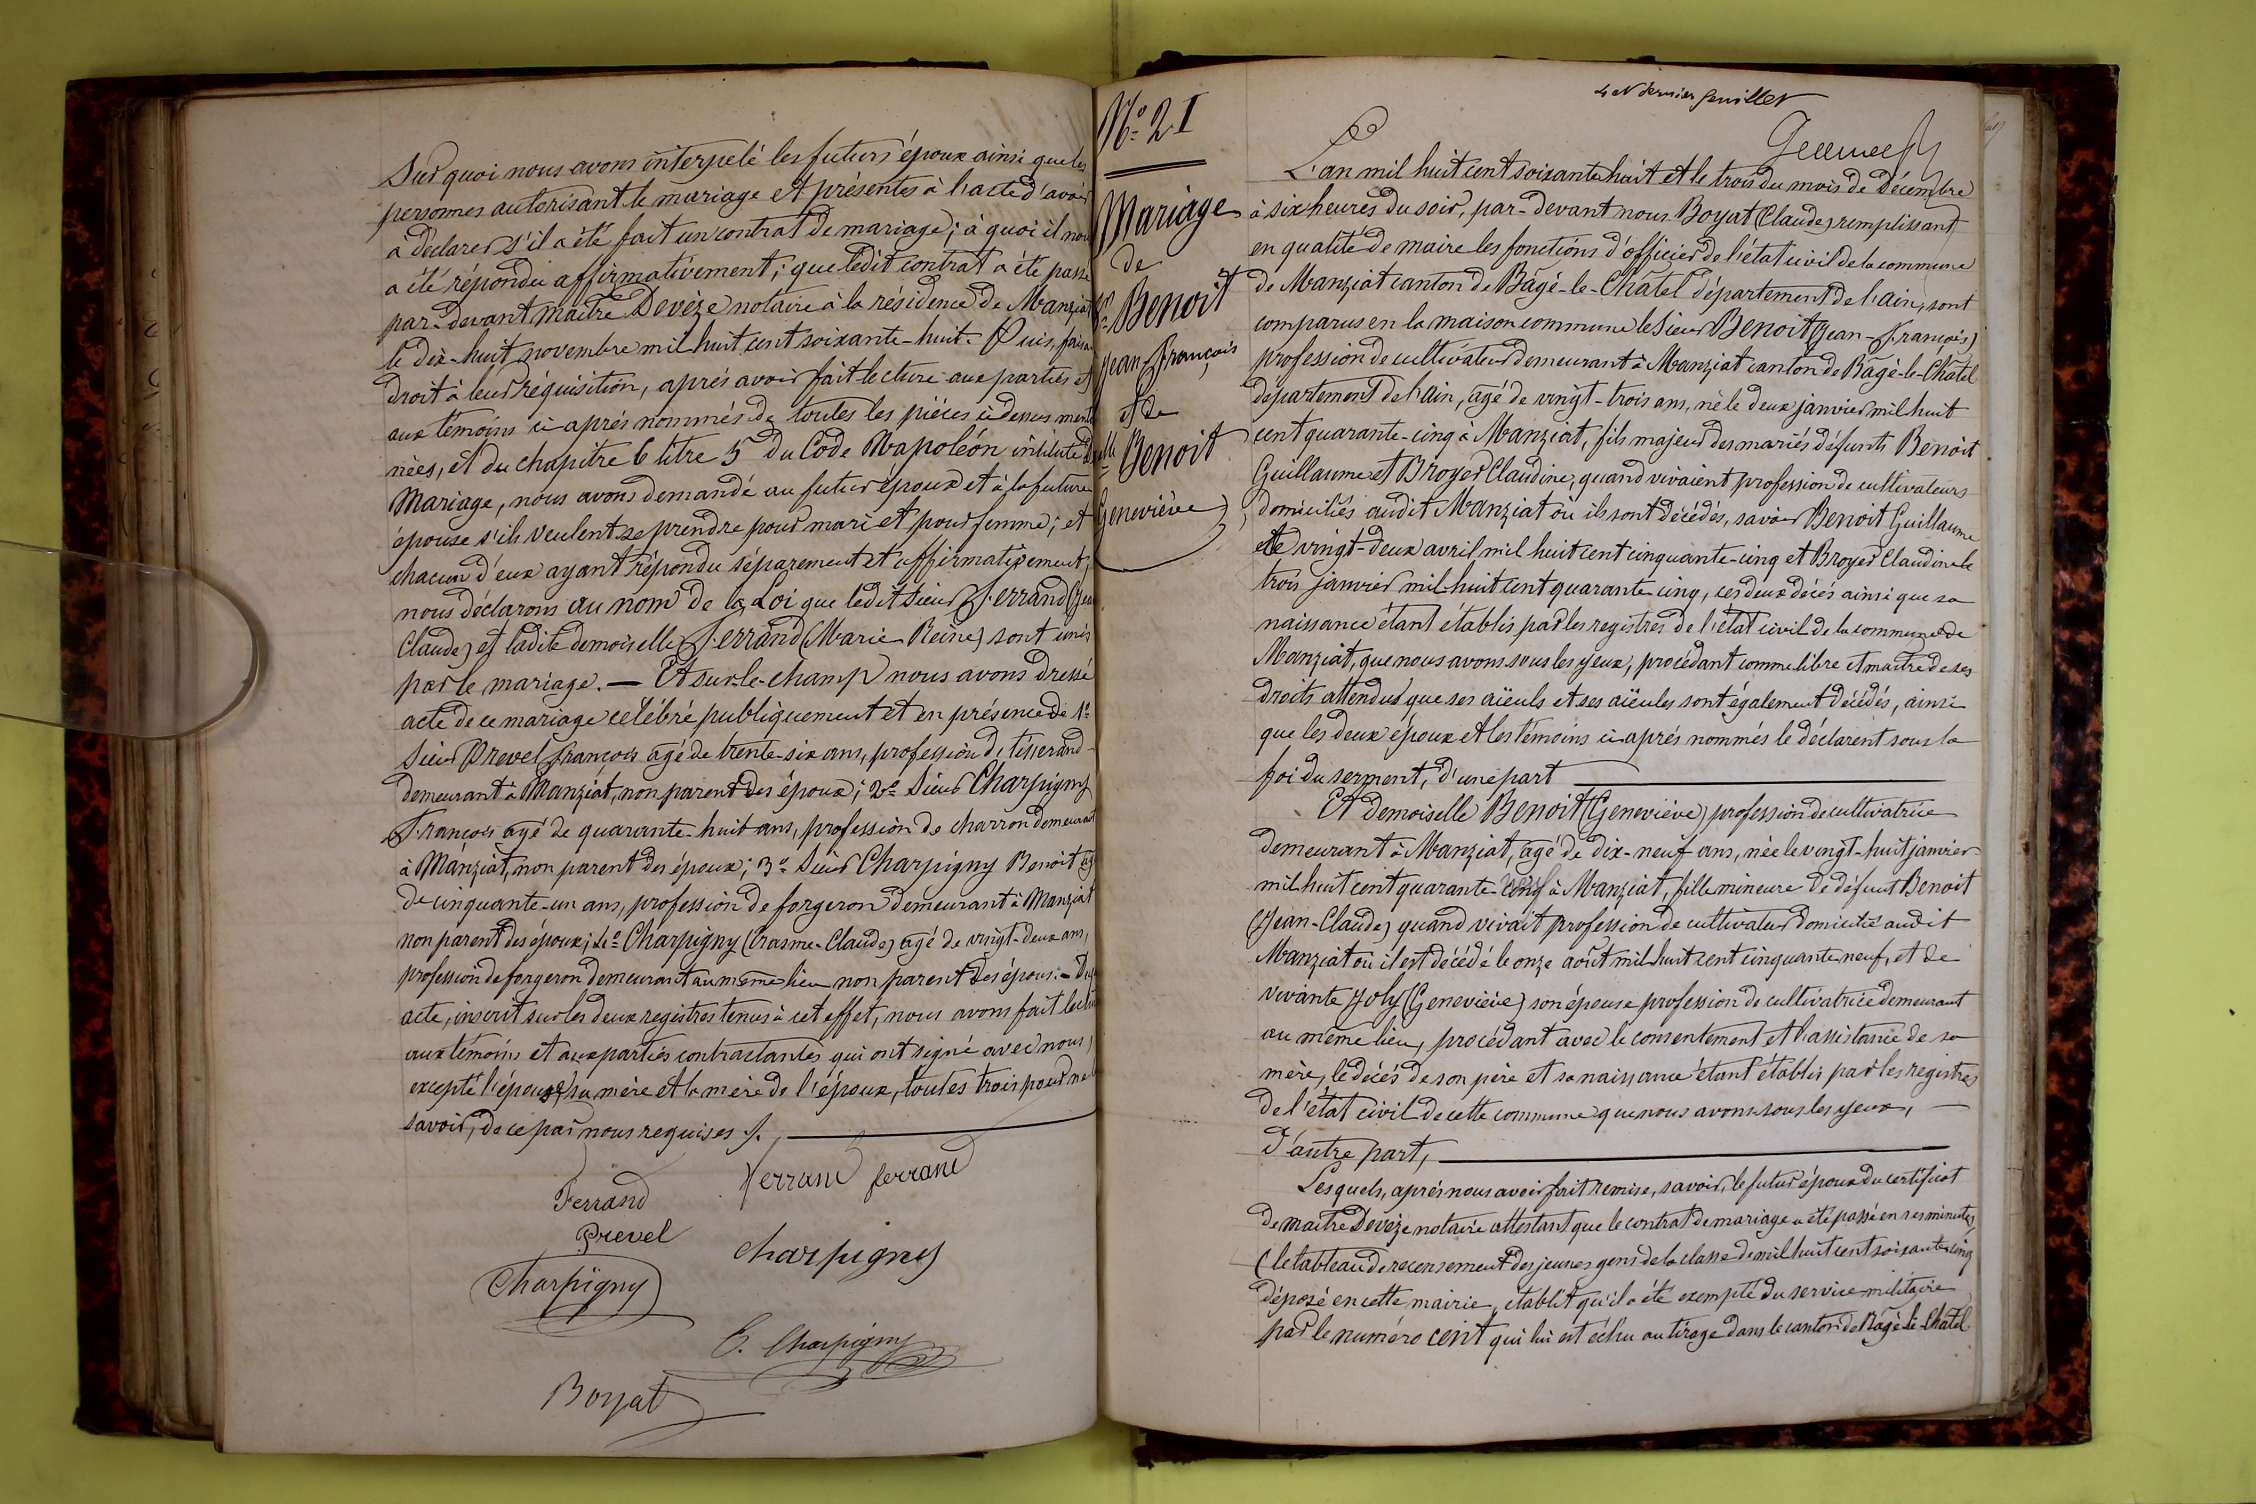 Sur quoi nous avons interpelé les futurs époux ainsi que les
personnes autorisant le mariage et présentes à l'acte d'avoir
à déclarer s'il a été fait un contrat de mariage; à quoi il nous
a été répondu affirmativement; que ledit contrat a été passé
par-devant maître Devèze notaire à la résidence de Manziat
le dix-huit novembre mil huit cent soixante-huit. Puis, faisa
droit à leur réquisition, après avoir fait lecture aux parties et
aux témoins ci-après nommés de toutes les pièces ci dessus mentio
nées, et du chapitre 6 titre 5 du Code Napoléon intitulé du
Mariage, nous avons demandé au futur époux et à la future
épouse s'ils veulent se prendre pour mari et pour femme; et
chacun d'eux ayant répondu séparement et affirmativement,
nous déclarons au nom de la Loi que ledit sieur Ferrand (Jean
Claude) et ladite demoiselle Ferrand (Marie Reine) sont unis
par le mariage. — Et sur-le-champ nous avons dressé
acte de ce mariage célébré publiquement et en présence de 1º
Sieur Prevel François agé de trente-six ans, profession de tisserand
demeurant à Manziat, non parent des époux; 2º Sieur Charpigny
François agé de quarante-huit ans, profession de charron demeurant
à Manziat, non parent des époux; 3º Sieur Charpigny Benoit agé
de cinquante-un ans, profession de forgeron demeurant à Manziat
non parent des époux; 4º Charpigny (Erasme-Claude) agé de vingt-deux ans,
profession de forgeron demeurant au même lieu non parent des époux. — Duq
acte, inscrit sur les deux registres tenus à cet effet, nous avons fait lectu
aux témoins et aux parties contractantes qui ont signé avec nous,
excepté l'épouse, sa mère et la mère de l'époux, toutes trois pour ne
savoir, de ce par nous requises ./.
Ferrand Ferrand ferrand
Prevel Charpigny
Charpigny
E. Charpigny
Boyat
Nº 21
Mariage
de
Sr Benoit
Jean-François
et de
Dlle Benoit
Geneviève
4 et dernier feuillet
L'an mil huit cent soixante huit et le trois du mois de Décembre
à six heures du soir, par-devant nous Boyat (Claude) remplissant
en qualité de maire les fonctions d'officier de l'état civil de la commune
de Manziat canton de Bâgé-le-Châtel département de l'ain, sont
comparus en la maison commune le Sieur Benoit (Jean-François)
profession de cultivateur demeurant à Manziat canton de Bâgé-le-Châtel
département de l'ain, agé de vingt-trois ans, né le deux janvier mil huit
cent quarante-cinq à Manziat, fils majeur des mariés défunts Benoit
Guillaume et Broyer Claudine, quand vivaient profession de cultivateurs
domiciliés audit Manziat où ils sont décédés, savoir Benoit Guillaume
le vingt-deux avril mil huit cent cinquante-cinq et Broyer Claudine le
trois janvier mil huit cent quarante cinq, ces deux décès ainsi que sa
naissance étant établis par les registres de l'état civil de la commune de
Manziat, que nous avons sous les yeux, procédant comme libre et maitre de ses
droits attendus que ses aïeuls et ses aïeules sont également décédés, ainsi
que les deux époux et les témoins ci-après nommés le déclarent sous la
foi du serment, d'une part
Et Demoiselle Benoit (Geneviève) profession de cultivatrice
demeurant à Manziat, agé de dix-neuf ans, née le vingt-huit janvier
mil huit cent quarante- à Manziat, fille mineure de défunt Benoit
(Jean-Claude) quand vivait profession de cultivateur domicilié audit
Manziat où il est décédé le onze août mil huit cent cinquante neuf, et de
vivante Joly (Geneviève) son épouse profession de cultivatrice demeurant
au même lieu, procédant avec le consentement et l'assistance de sa
mère, le décès de son père et sa naissance étant établis par les registres
de l'état civil de cette commune que nous avons sous les yeux,
D'autre part,
Lesquels, après nous avoir fait remise, savoir, le futur époux du certificat
de maître Devèze notaire attestant que le contrat de mariage a été passé en ses minutes,
(le tableau de recensement des jeunes gens de la classe de mil huit cent soixante cinq
déposé en cette mairie, établit qu'il a été exempté du service militaire
par le numéro cent qui lui est échu au tirage dans le canton de Bâgé-le-Châtel